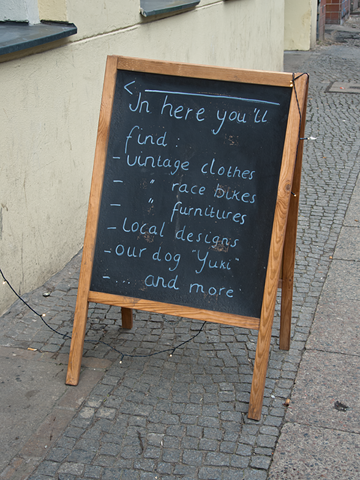 <
In here you'll
find:
- vintage clothes
- " race bikes
- " furnitures
- Local designs
- our dog "Yuki"
- .... and more